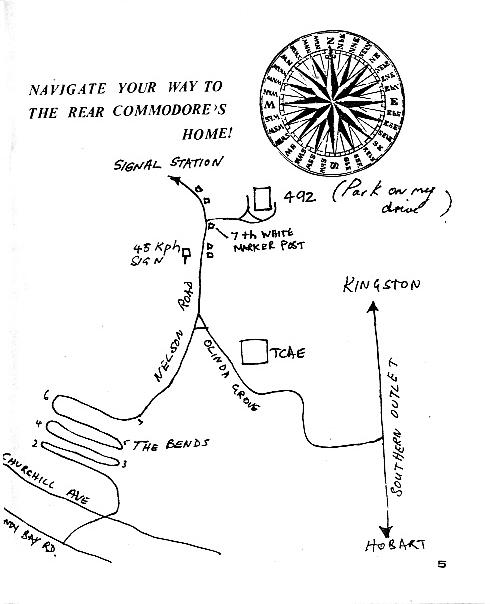 NAVIGATE YOUR WAY TO
THE REAR COMMODORE'S
HOME!
N
E
S
W
SIGNAL STATION
492 (Park on my
drive)
7th WHITE
MARKER POST
45 Kph
SIGN
KINGSTON
NELSON ROAD
OLINDA GROVE
TCAE
SOUTHERN OUTLET
6
4
2
1
5
3
THE BENDS
CHURCHILL AVE
NDY BAY RD.
HOBART
5